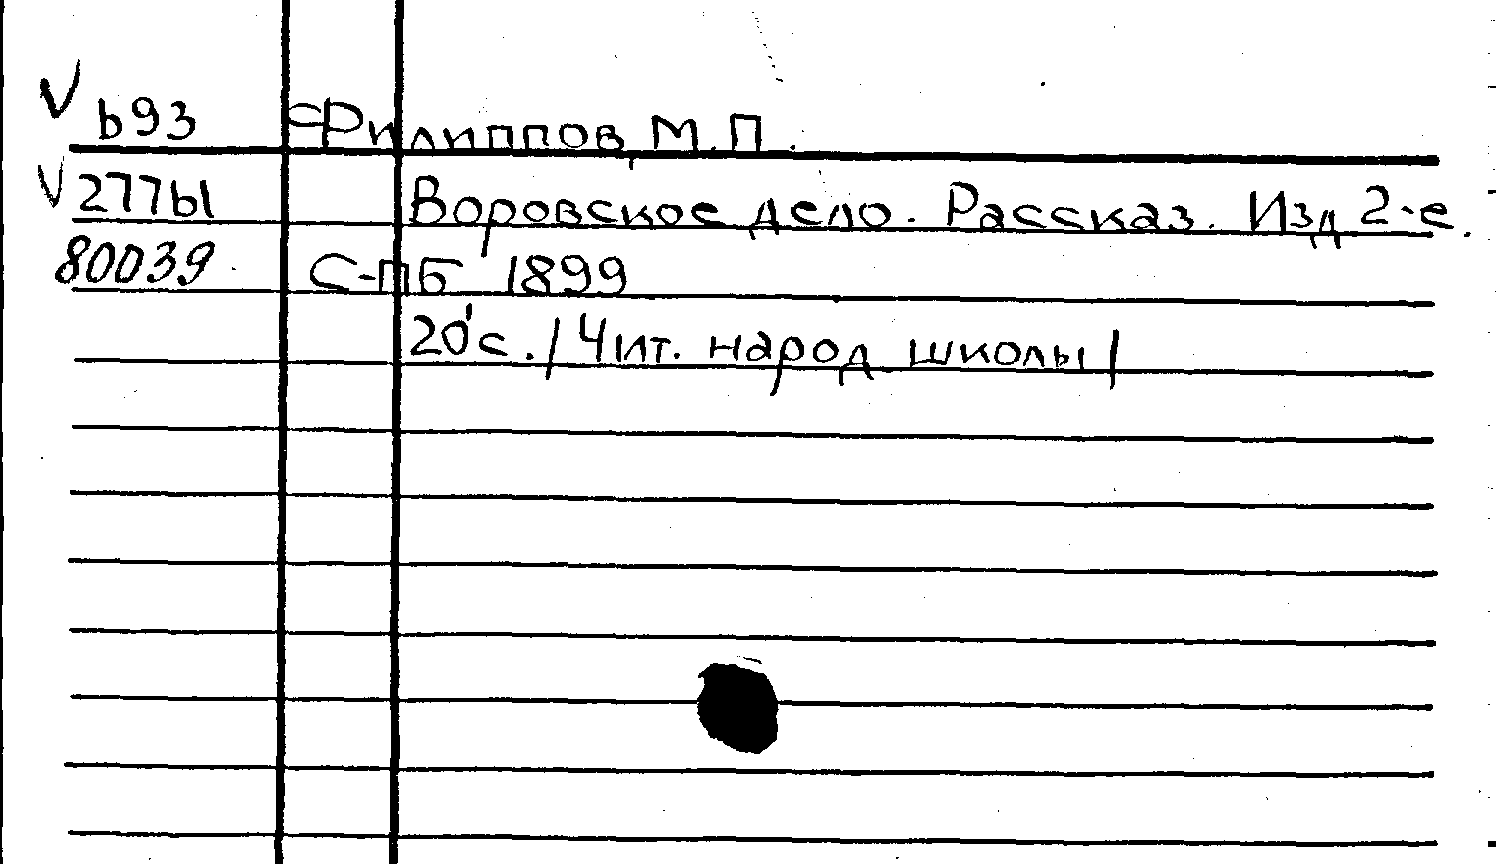 V b93 Филиппов, М.П.
V 277ы Воровское дело. Рассказ. Изд 2-е.
80039 С-ПБ 1899
20 с. / Чит. народ школы /